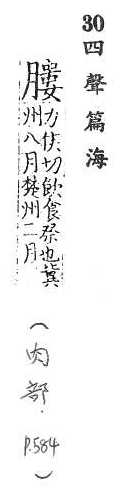 30 四聲篇海
膢力侯切飲食祭也冀
州八月楚州二月
(肉部. P.584)